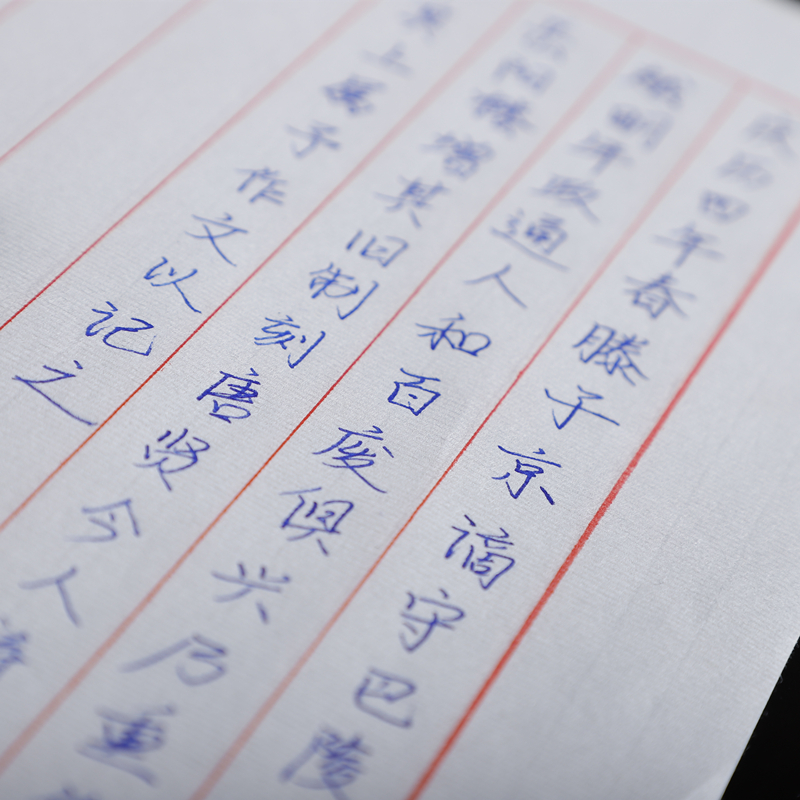 庆历四年春滕子京谪守巴陵
越明年政通人和百废俱兴乃重
岳阳楼增其旧制刻唐贤今人诗
其上属予作文以记之